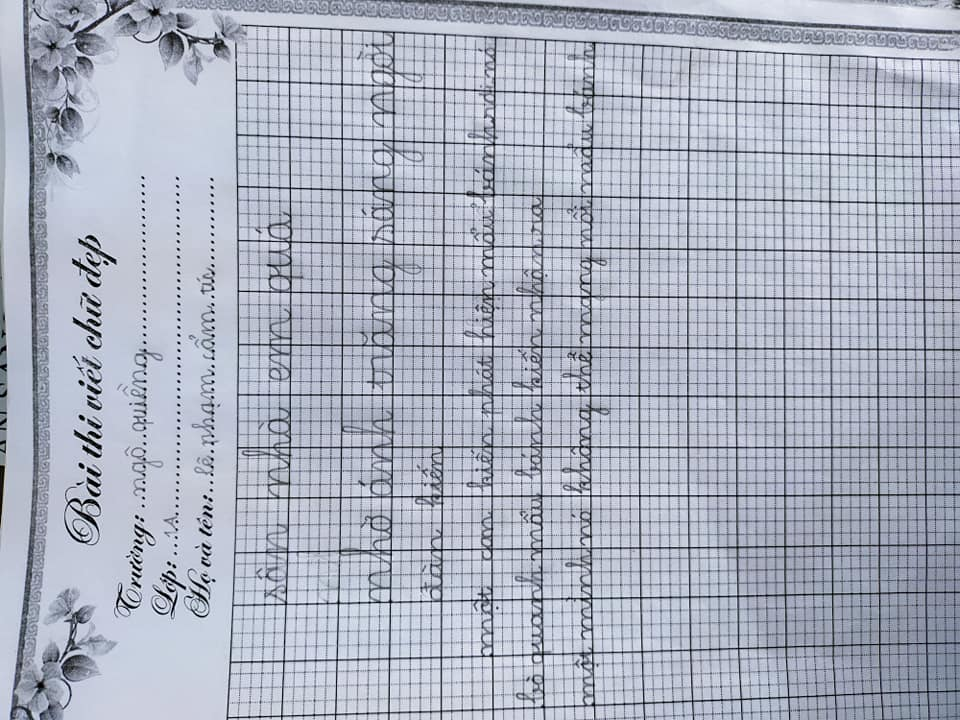 Bài thi viết chữ đẹp
Trường: ngô quiềng
Lớp: 1A
Họ và tên: lê phạm cẩm tú
sân nhà em quá
nhờ ánh trăng sáng ngời
đàn kiến
một con kiến phát hiện mẩu bánh rơi nó
bò quanh mẩu bánh kiến nhận ra
một mình nó không thể mang nổi mẩu bánh